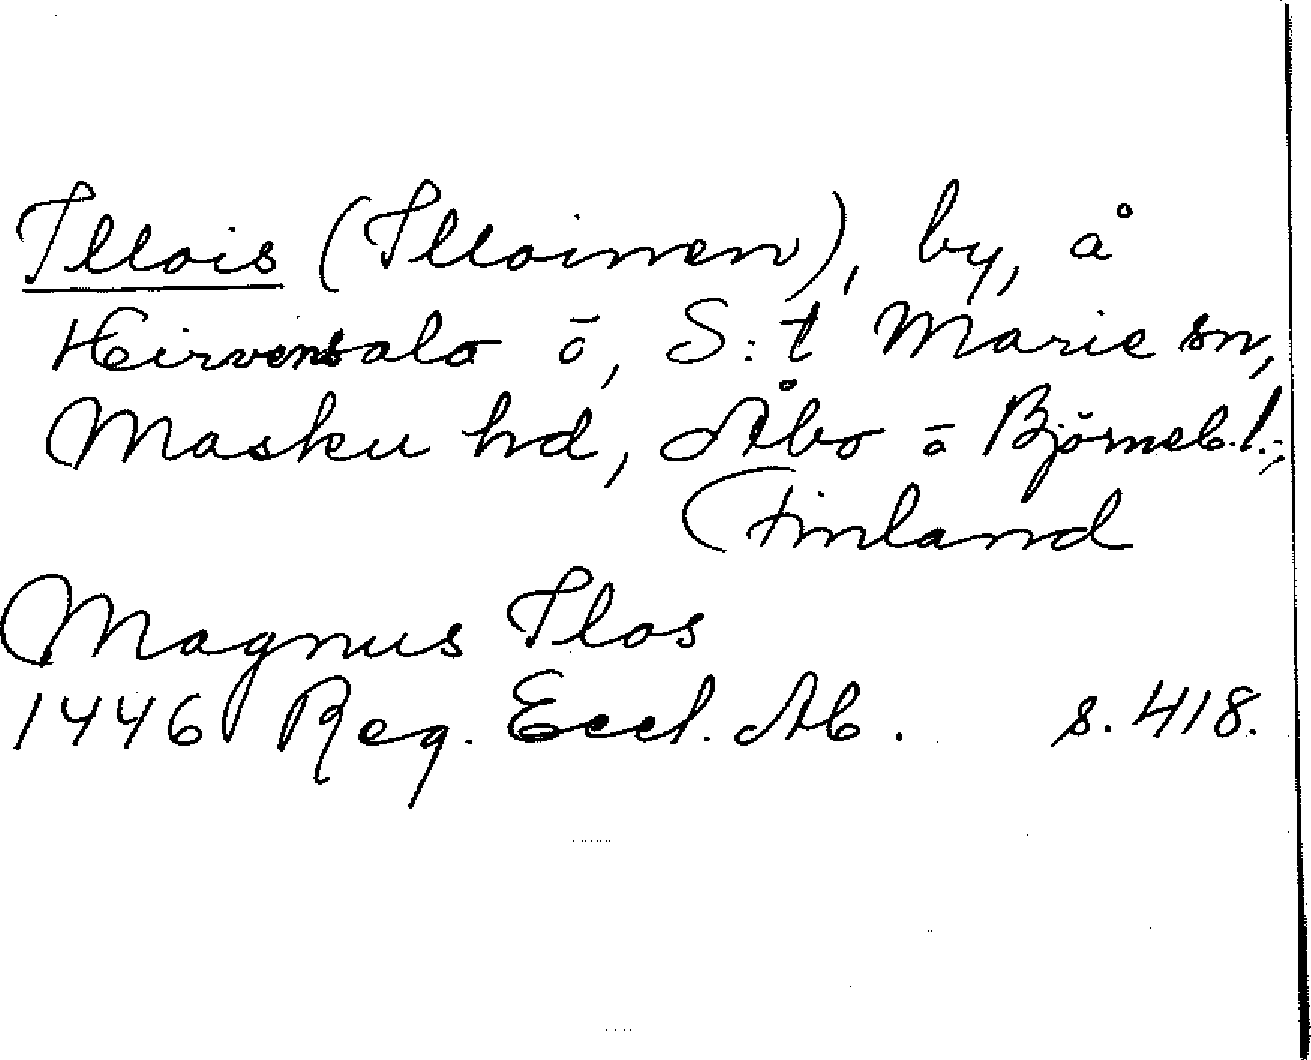 Illois (Illoinen), by, å
Heirvensalo ö, S:t Marie sn,
Masku hd, Åbo o Björneb. l.,
Finland
Magnus Ilos
1446 Reg. Eccl. Ab. s. 418.